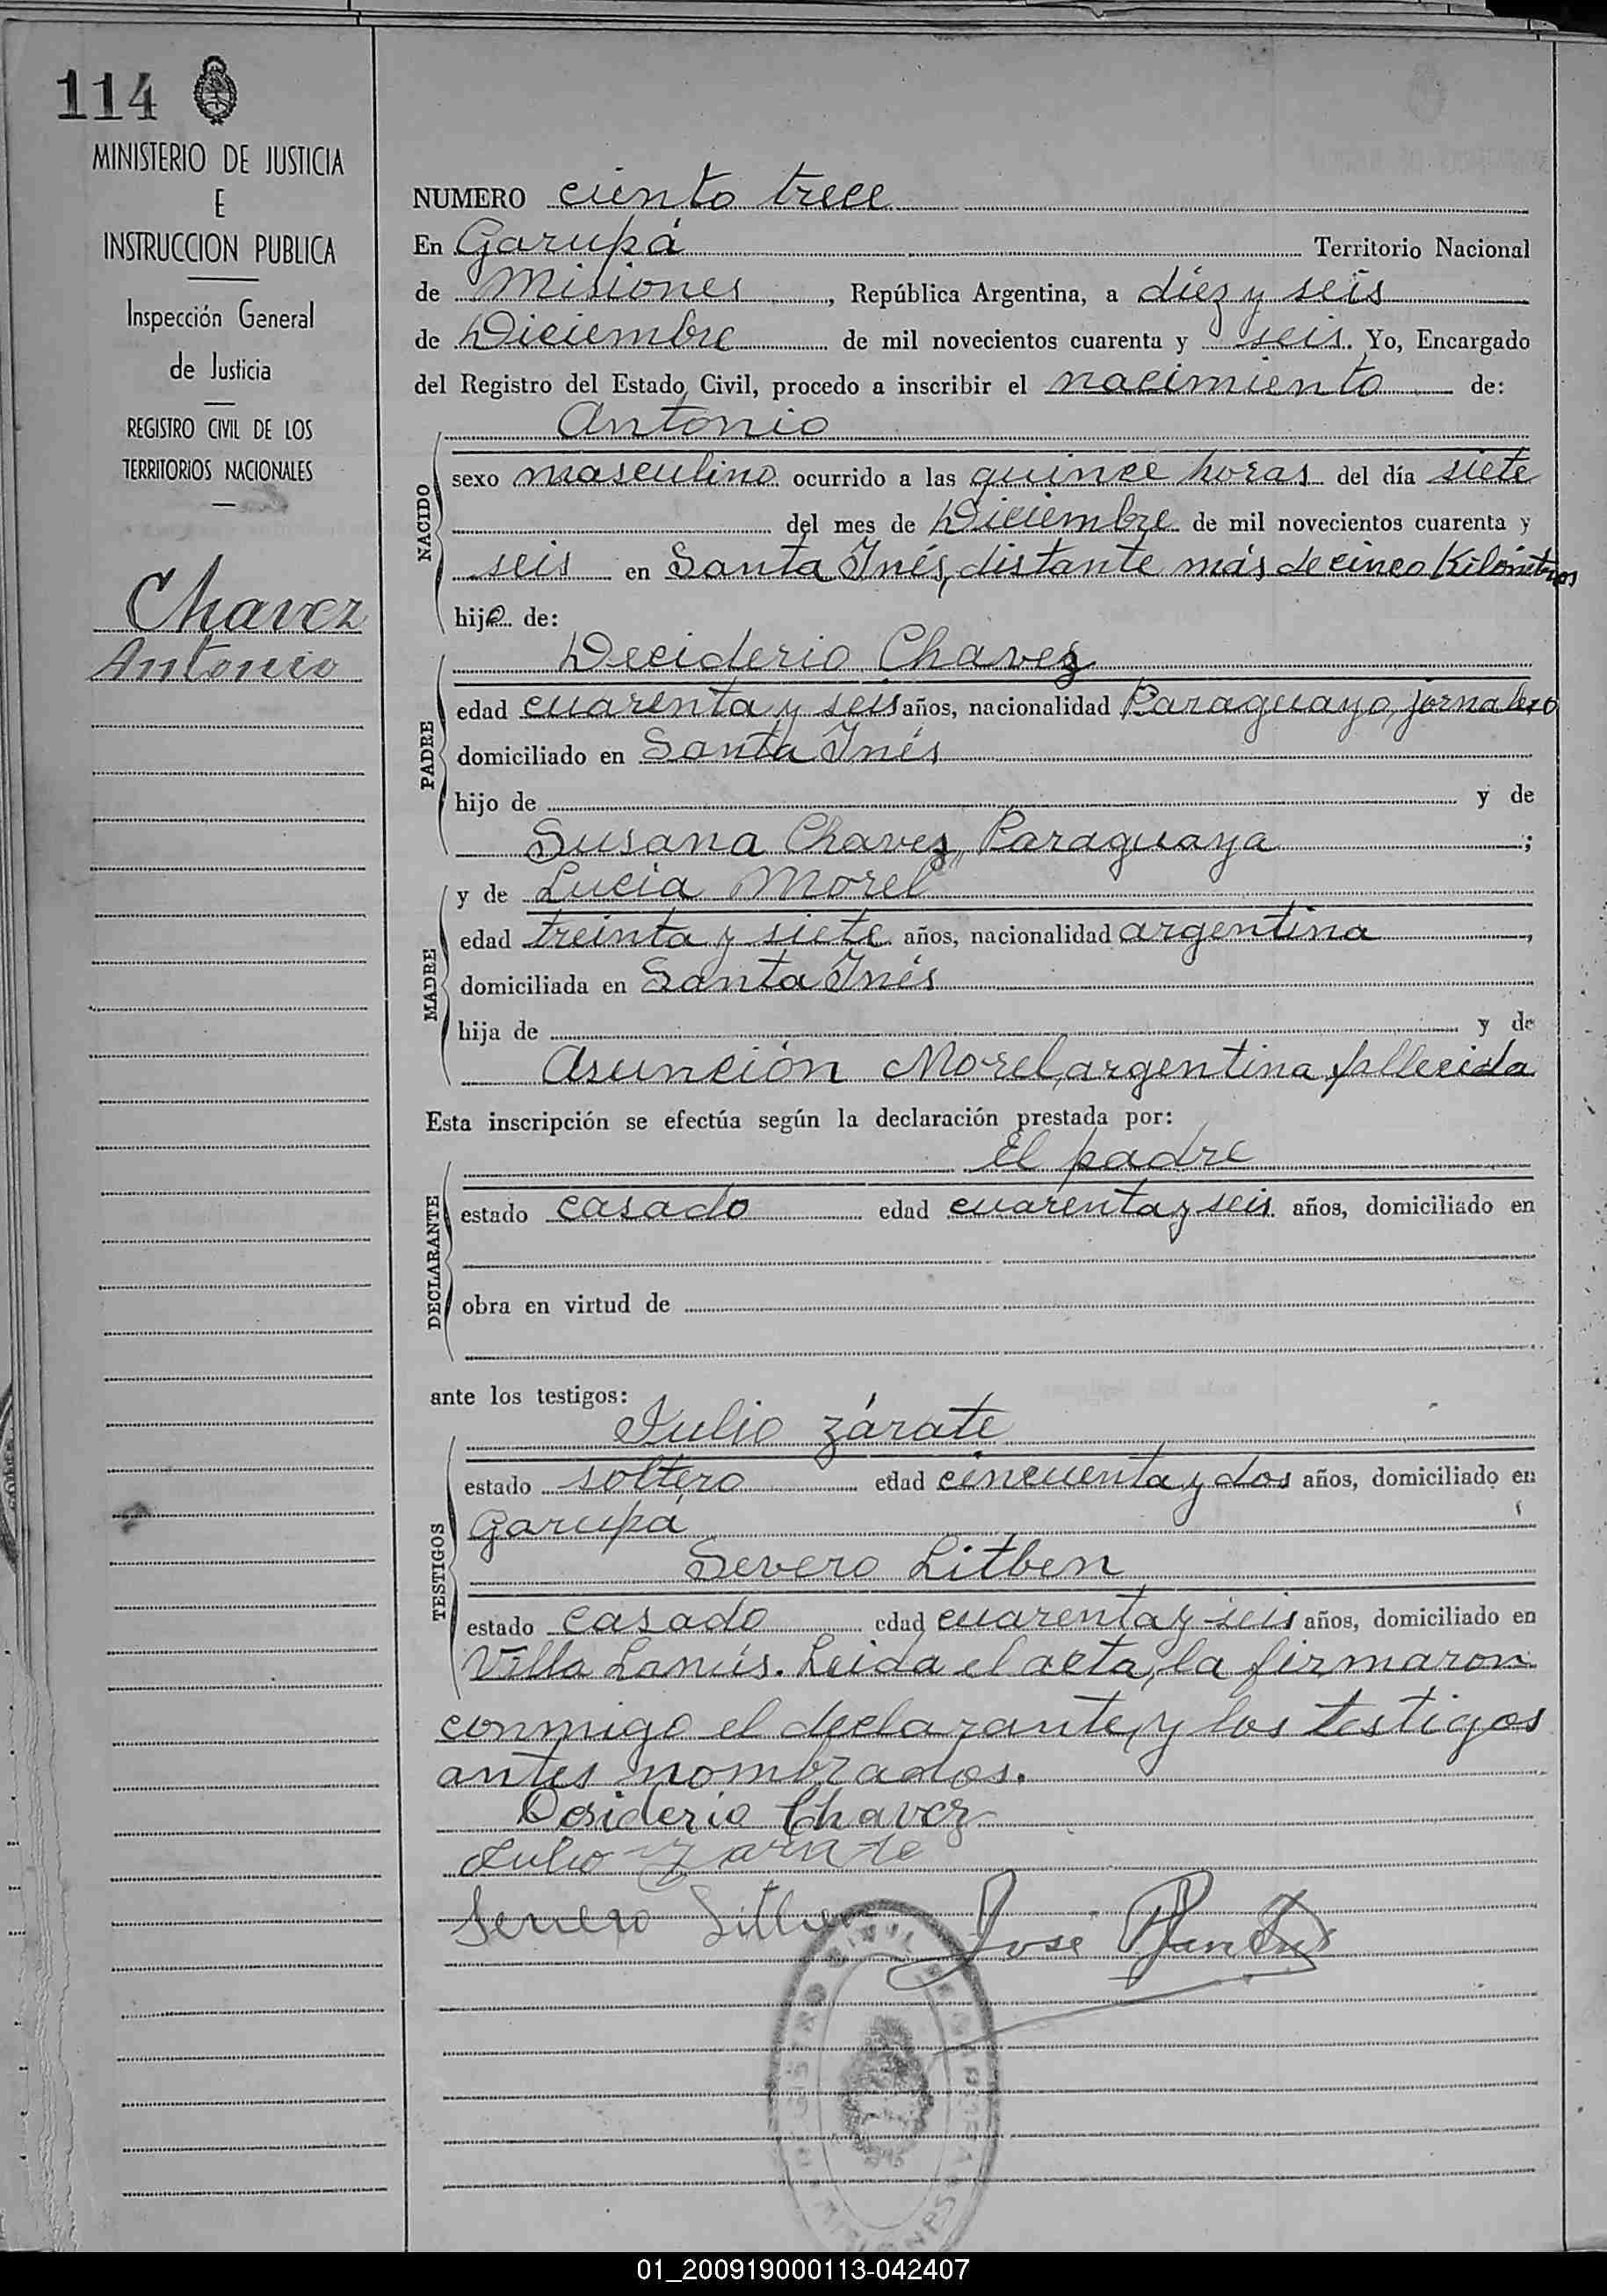 114
MINISTERIO DE JUSTICIA
E
INSTRUCCION PUBLICA
Inspección General
de Justicia
REGISTRO CIVIL DE LOS
TERRITORIOS NACIONALES
Chavez
Antonio
NUMERO ciento trece
En Garupá Territorio Nacional
de Misiones, República Argentina, a diez y seis
de Diciembre de mil novecientos cuarenta y seis. Yo, Encargado
del Registro del Estado Civil, procedo a inscribir el nacimiento de:
Antonio
NACIDO
sexo masculino ocurrido a las quince horas del día siete
del mes de Diciembre de mil novecientos cuarenta y
seis en Santa Inés, distante más de cinco Kilómetros
hijo de:
Deciderio Chavez
PADRE
edad cuarenta y seis años, nacionalidad Paraguayo, jornalero
domiciliado en Santa Inés
hijo de y de
Susana Chavez, Paraguaya ;
MADRE
y de Lucia Morel
edad treinta y siete años, nacionalidad argentina ,
domiciliada en Santa Inés
hija de y de
Asunción Morel, argentina, fallecida
Esta inscripción se efectúa según la declaración prestada por:
El padre
DECLARANTE
estado casado edad cuarenta y seis años, domiciliado en
obra en virtud de
ante los testigos:
Julio Zárate
TESTIGOS
estado soltero edad cincuenta y dos años, domiciliado en
Garupá
Severo Litben
estado casado edad cuarenta y seis años, domiciliado en
Villa Lanús. Leida el acta, la firmaron
conmigo el declarante, y los testigos
antes nombrados.
Desiderio Chavez
Julio Zarate
José
01_200919000113-042407